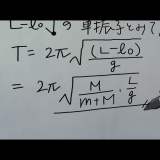 L-l₀の単振子とみて
T = 2π√((L-l₀)/g)
= 2π√(M/(m+M)・L/g)